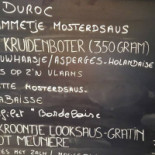 DUROC
MMETJE MOSTERDSAUS
KRUIDENBOTER (350 GRAM)
UWHAASJE/ASPERGES-HOLLANDAISE
S OP Z'N VLAAMS
ETTA MOSTERDSAUS
ABAISSE
KROOKTE LOOKSAUS-GRATIN
OT MEUNIERE